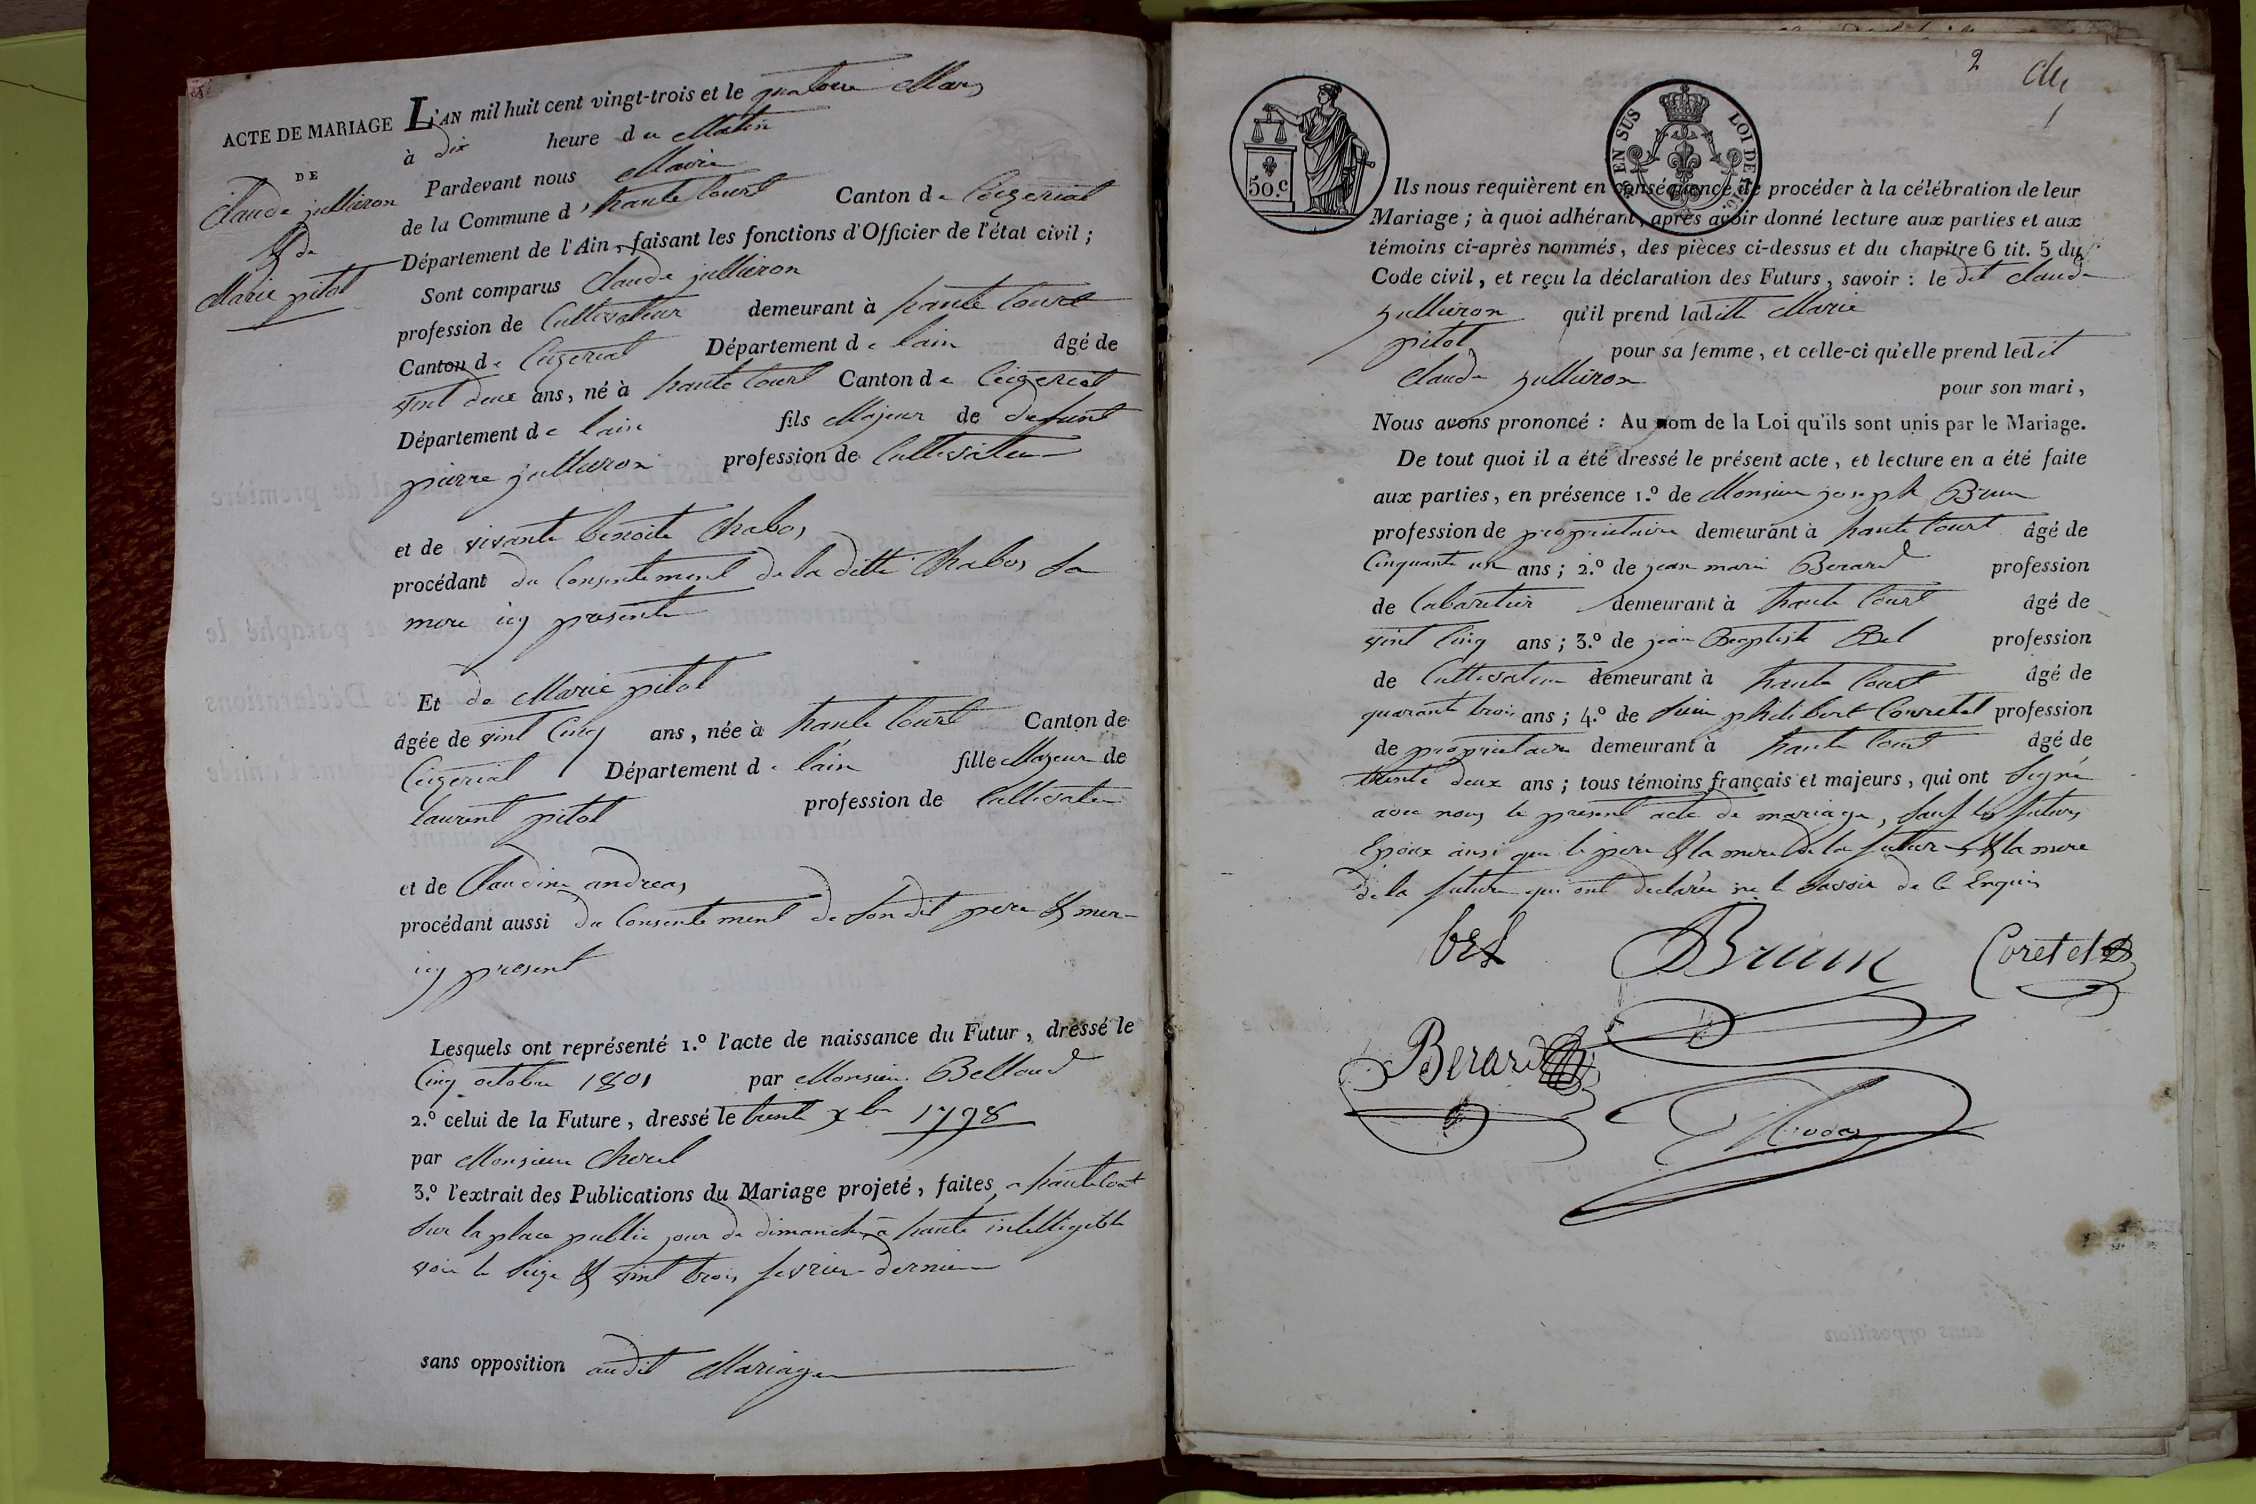 ACTE DE MARIAGE
DE
Claude jullieron
& de
Marie pitot
L'AN mil huit cent vingt-trois et le quatorze Mars
à dix heure du Matin
Pardevant nous Maire
de la Commune d'hautecourt Canton de Ceizeriat
Département de l'Ain, faisant les fonctions d'Officier de l'état civil ;
Sont comparus Claude jullieron
profession de Cultivateur demeurant à haute Court
Canton de Ceizeriat Département de lain âgé de
vint deux ans, né à haute Court Canton de Ceizeriat
Département de lain fils Majeur de defunt
pierre jullieron profession de Cultivateur
et de vivante benoite Chabos
procédant du Consentement de la ditte Chabos sa
mere icy presente
Et de Marie pitot
âgée de vint Cinq ans, née à haute Court Canton de
Ceizeriat Département de lain fille Majeur de
laurent pitot profession de Cultivateur
et de Claudine andreas
procédant aussi du Consentement de son dit pere & mere
icy present
Lesquels ont représenté 1.º l'acte de naissance du Futur, dressé le
Cinq octobre 1801 par Monsieur Belloud
2.º celui de la Future, dressé le trente xbre 1798
par Monsieur Chorel
3.º l'extrait des Publications du Mariage projeté, faites a hautecourt
sur la place public jour de dimanche a haute intelligible
voix le seize & vint trois fevrier dernier
sans opposition audit Mariage
2
50.c
EN SUS LOI DE
Ils nous requièrent en conséquence de procéder à la célébration de leur
Mariage ; à quoi adhérant, après avoir donné lecture aux parties et aux
témoins ci-après nommés, des pièces ci-dessus et du chapitre 6 tit. 5 du
Code civil, et reçu la déclaration des Futurs, savoir : le dit claude
jullieron qu'il prend laditte Marie
pitot pour sa femme, et celle-ci qu'elle prend ledit
Claude jullieron pour son mari,
Nous avons prononcé : Au nom de la Loi qu'ils sont unis par le Mariage.
De tout quoi il a été dressé le présent acte, et lecture en a été faite
aux parties, en présence 1.º de Monsieur joseph Brun
profession de proprietaire demeurant à haute Court âgé de
Cinquante un ans ; 2.º de jean marie Berard profession
de Cabaretier demeurant à haute Court âgé de
vint Cinq ans ; 3.º de jean Baptiste Bel profession
de Cultivateur demeurant à haute Court âgé de
quarante trois ans ; 4.º de philibert Corretel profession
de proprietaire demeurant à haute Court âgé de
trente deux ans ; tous témoins français et majeurs, qui ont signé
avec nous le present acte de mariage, sauf les futurs
Epoux ainsi que le pere & la mere de la future & la mere
de la future qui ont declarée ne le savoir de ce Enquis
bel Brun Coretel
Berard